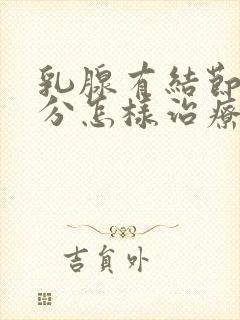 乳腺有結節
分怎樣治療
吉貟外